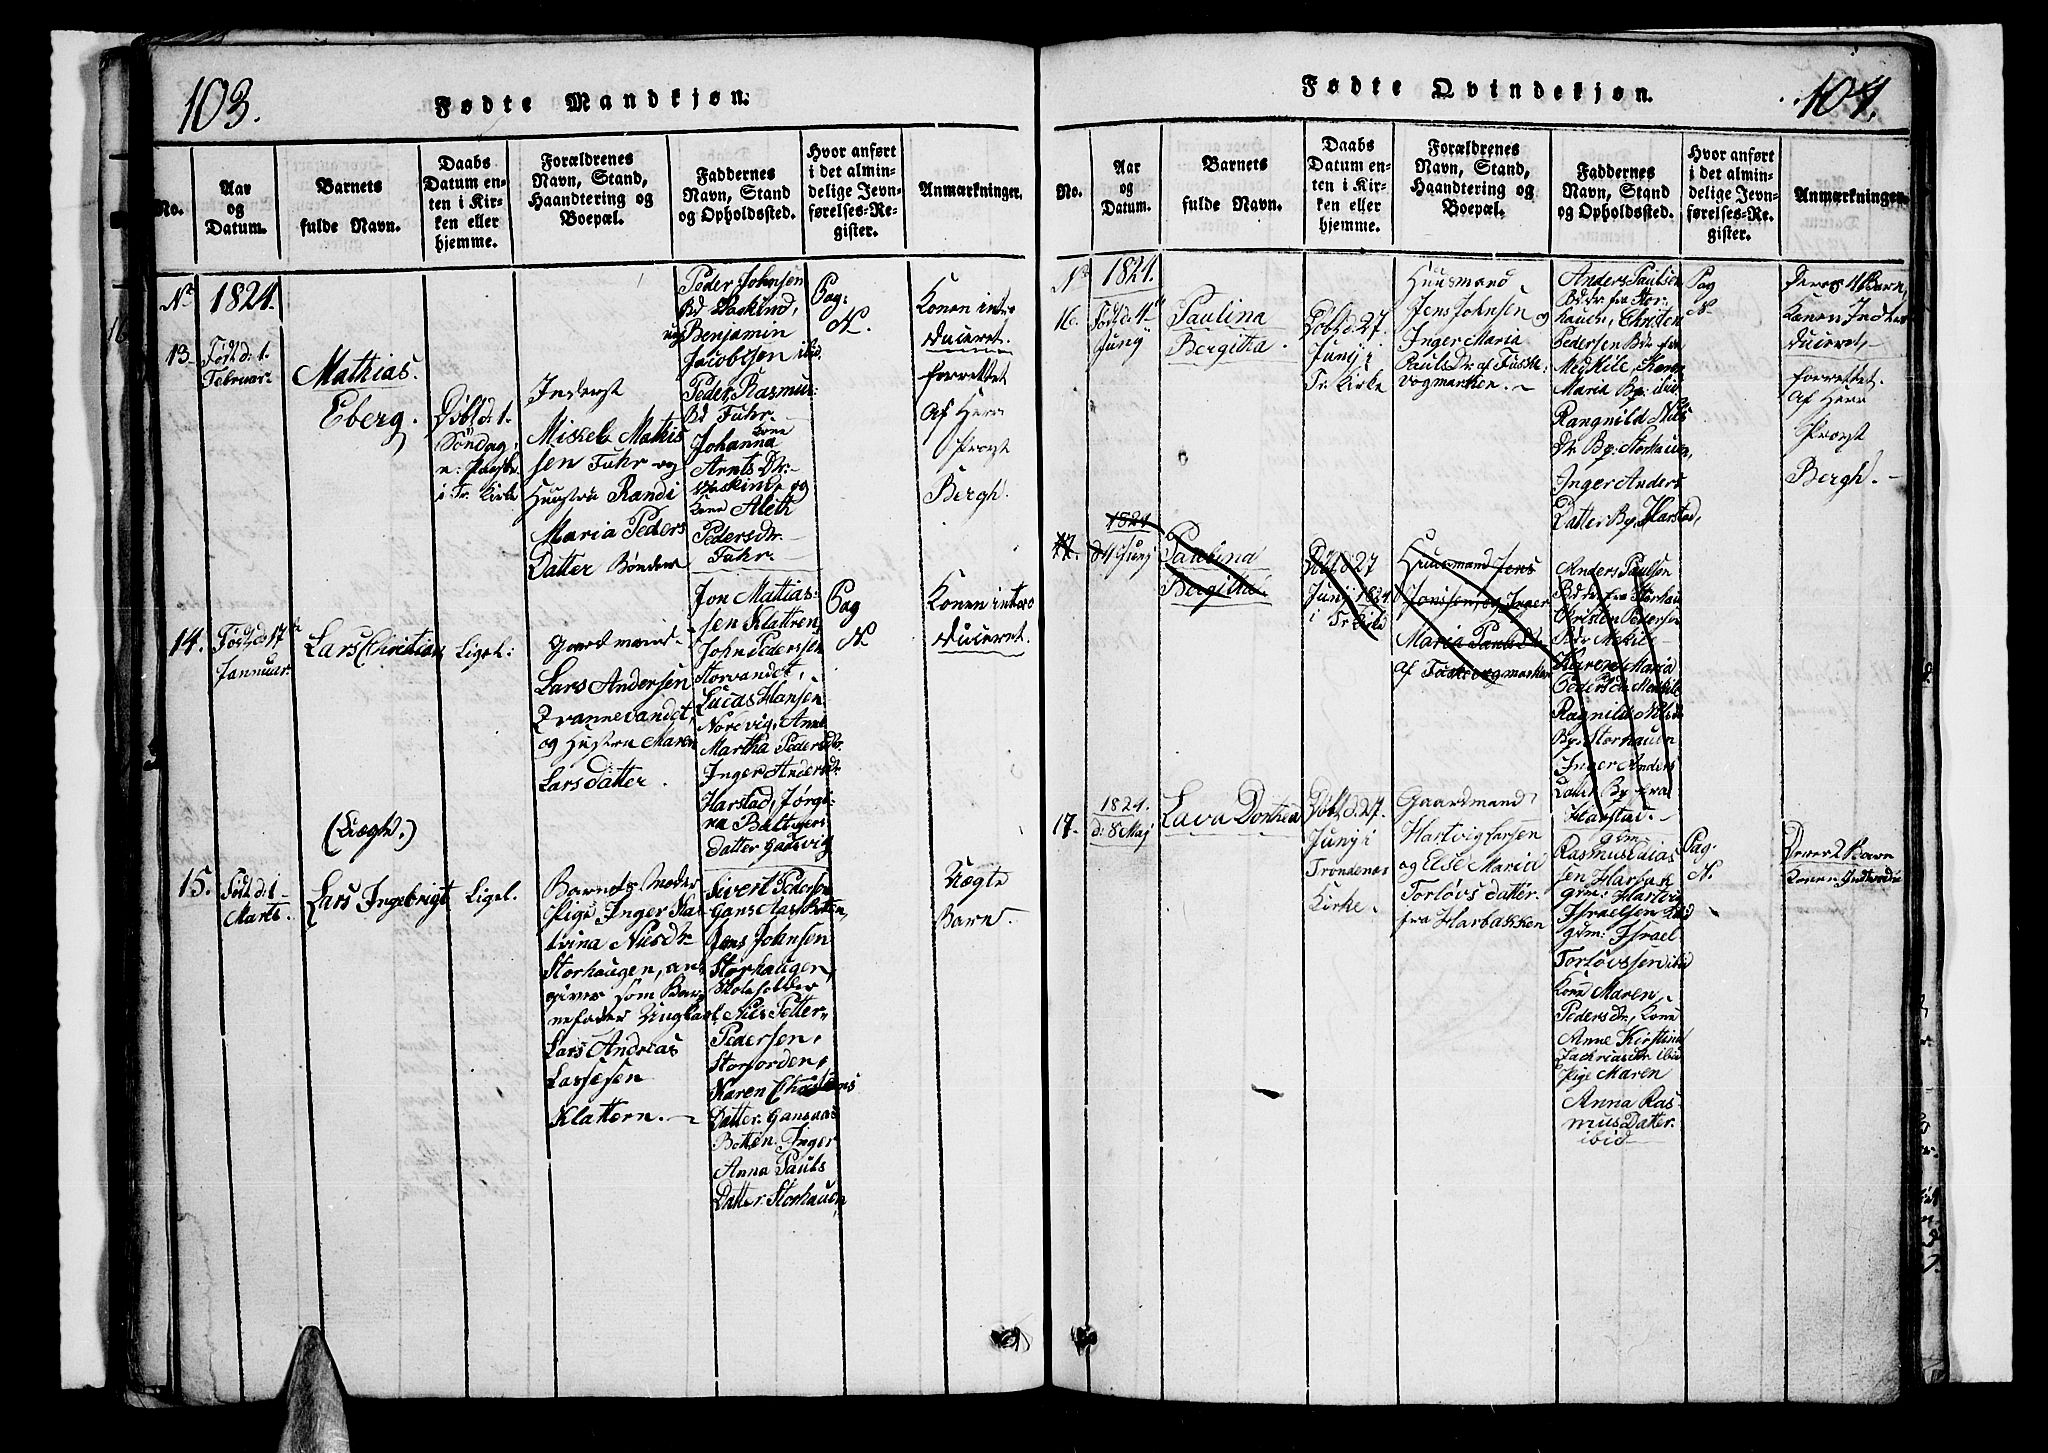 103.
Fødte Mandkjøn.
No.
Aar
og
Datum.
Barnets
fulde Navn.
Daabs
Datum en-
ten i Kir-
ken eller
hjemme.
Forældrenes
Navn, Stand,
Haandtering og
Boepæl.
Faddernes
Navn, Stand
og Opholdssted.
Hvor anført
i det almin-
delige Jevn-
førelses-Re-
gister.
Anmærkninger.
No
1824.
13
Født d: 1.
Februar.
Mathias
Eberg.
Døbt d: 1.
Søndag
i Tr. Kirke
Inderst
Missel Mathis
sen Fuhr og
Hustru Randi
Maria Peders
Datter Bønder
Peder Johnsen
Benjamin
Jacobssen ibid.
Peder Rasmus:
Bd Fuhr.
Kone
Johanna
Arnts Dr:
og
Kone Aleth
Pedersdr.
Fuhr.
Pag:
N.
Konen intro
duceret.
forrettet
Af Herr
Provst
Bergh.
14.
Født d: 17
Jannuar.
Lars Christian
Liget:
Gaardmand
Lars Andersen
Tvannevandet,
og Hustru Maren
Lars datter.
Jon Mathias:
sen Klattren,
John Pedersen
Storvandet,
Lucas Hansen
Norevig, Anne
Martha Pedersdr.
Inger Andersdr
Harstad, Jørgi:
na Baltzers
datter Gansvig
Pag
N.
Konen intro
duceret.
(Uægte.)
15.
Født d: 1
Marts.
Lars Ingebrigt
Liget.
Barnets Moder
Pige Inger Ka
trina Nilsdr
Storhaugen, an
giver som Bar
nefader Ungkarl
Lars Andreas
Lassesen
Klattern.
Sivert Pedersen
Gansaas Botten,
Jens Johnsen
Storhaugen,
Skoleholder
Nils Petter
Pedersen,
Storjorden,
Karen Christens
Datter. Gansaas
Botten. Inger
Anna Pauls
Datter: Storhauen
Uægte
Barn.
Fødte Qvindekjøn.
104.
No.
Aar
og
Datum.
Barnets
fulde Navn.
Daabs
Datum en-
ten i Kir-
ken eller
hjemme.
Forældrenes
Navn, Stand,
Haandtering og
Boepæl.
Faddernes
Navn, Stand
og Opholdssted.
Hvor anført
i det almin-
delige Jevn-
førelses-Re-
gister.
Anmærkninger.
No
1824.
16.
Født d: 4
Junij
Paulina
Bergitha.
Døbt d: 27
Junij i
Tr. Kirke
Huusmand
Jens Johnsen og
Inger Maria
Pauls Dr. af Fuske
vogmarken.
Anders Paulsen
Bdr. fra Stor:
hauen, Christen
Pedersen Bdr fra
Medkile, Karen
Maria Bp: ibid.
Rangnild Nils
Dr Bp: Storhauen,
Inger Anders
Datter Bp. Harstad,
Pag
N.
Deres 4 Barn,
Konen Intro
duceret,
forrettet.
Af Herr
Provst
Bergh.
1824
17.
d 4 Junij
Paulina
Bergitha.
Døbt d: 27
Junij 1824
i Tr Kirke
Huusmand Jens
Jonsen og Inger
Maria Paulsdr
af Fuskevogmarken
Anders Paulsen
Bdr. fra Storhau
Christen Pedersen
Bdr Mekile
Karen Maria
Pedersdr. Mekile
Ragnild Nilsdr
Bp. Storhauen
Inger Anders
Datter Bp fra
Harstad.
17
1824.
d: 8 Maj
Lava Dorthea
Døbt d. 27.
Junij i
Trondenes
Kirke.
Gaardmand
Hartvig Larsen
og Else Maria
Torlovs datter.
fra Harbakken
gdm
Rasmus Taias
sen Harbak
gdm: Hartvig
Israelsen ibid
gdm: Israel
Torlovssen ibid
Kone Maren
Pedersdr., Kone
Anne Kirstine
Zachriasdr ibid
Pige Maren
Anna Ras
mus Datter.
ibid
Pag.
N.
Deres 2 Barn
Konen Introdu